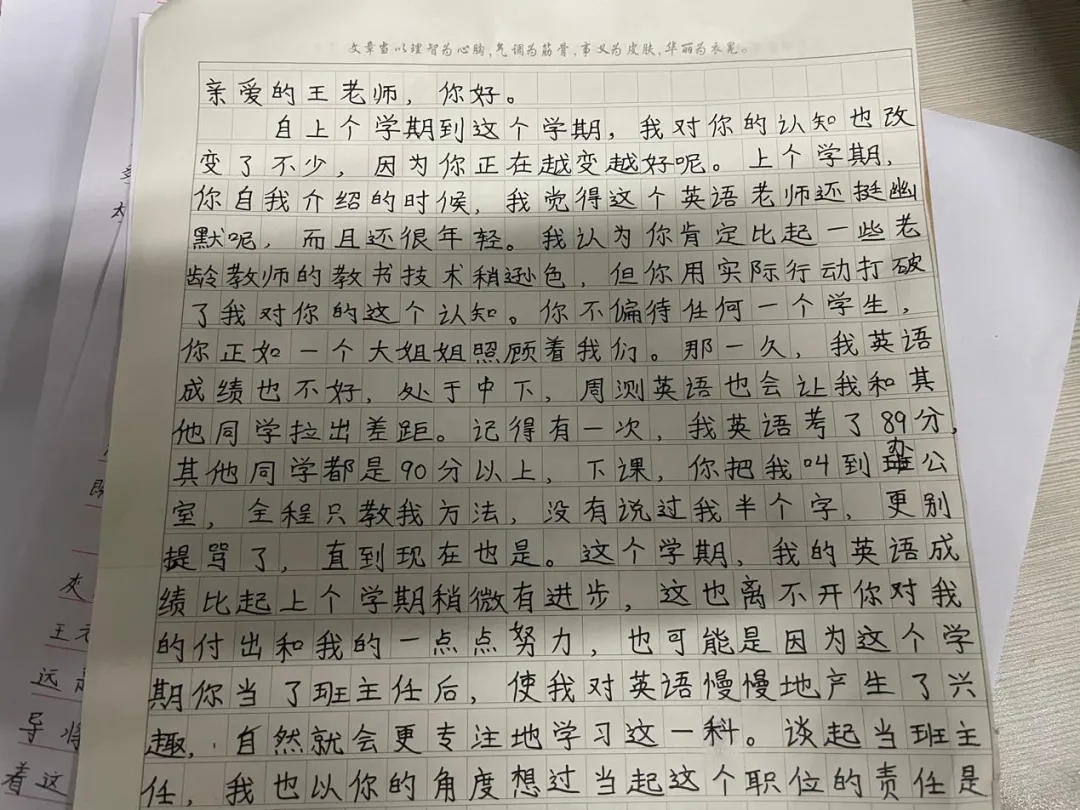 文章当以理智为心胸,气调为筋骨,事义为皮肤,华丽为衣冕。
亲爱的王老师，你好。
自上个学期到这个学期，我对你的认知也改
变了不少，因为你正在越变越好呢。上个学期，
你自我介绍的时候，我觉得这个英语老师还挺幽
默呢，而且还很年轻。我认为你肯定比起一些老
龄教师的教书技术稍逊色，但你用实际行动打破
了我对你的这个认知。你不偏待任何一个学生，
你正如一个大姐姐照顾着我们。那一久，我英语
成绩也不好，处于中下，周测英语也会让我和其
他同学拉出差距。记得有一次，我英语考了89分，
其他同学都是90分以上，下课，你把我叫到办公
室，全程只教我方法，没有说过我半个字，更别
提骂了，直到现在也是。这个学期，我的英语成
绩比起上个学期稍微有进步，这也离不开你对我
的付出和我的一点点努力，也可能是因为这个学
期你当了班主任后，使我对英语慢慢地产生了兴
趣，自然就会更专注地学习这一科。谈起当班主
任，我也以你的角度想过当起这个职位的责任是
王
远
导将
着这